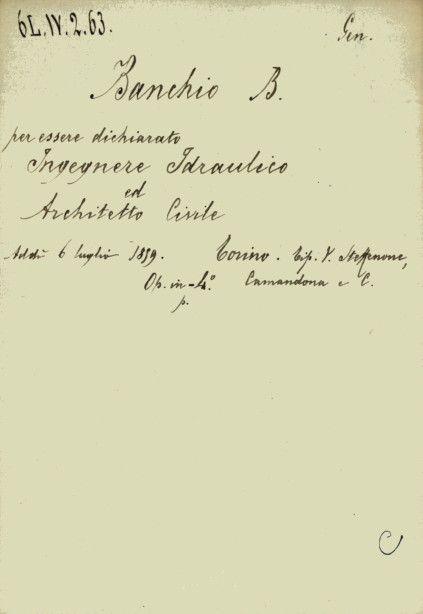 6L.IV.2.63.
Gen.
Banchio B.
per essere dichiarato
Ingegnere Idraulico
ed
Architetto Civile
Addì 6 luglio 1859. Torino. Tip. V. Steffenone,
Op. in-4.° Camandona e C.
p.
C